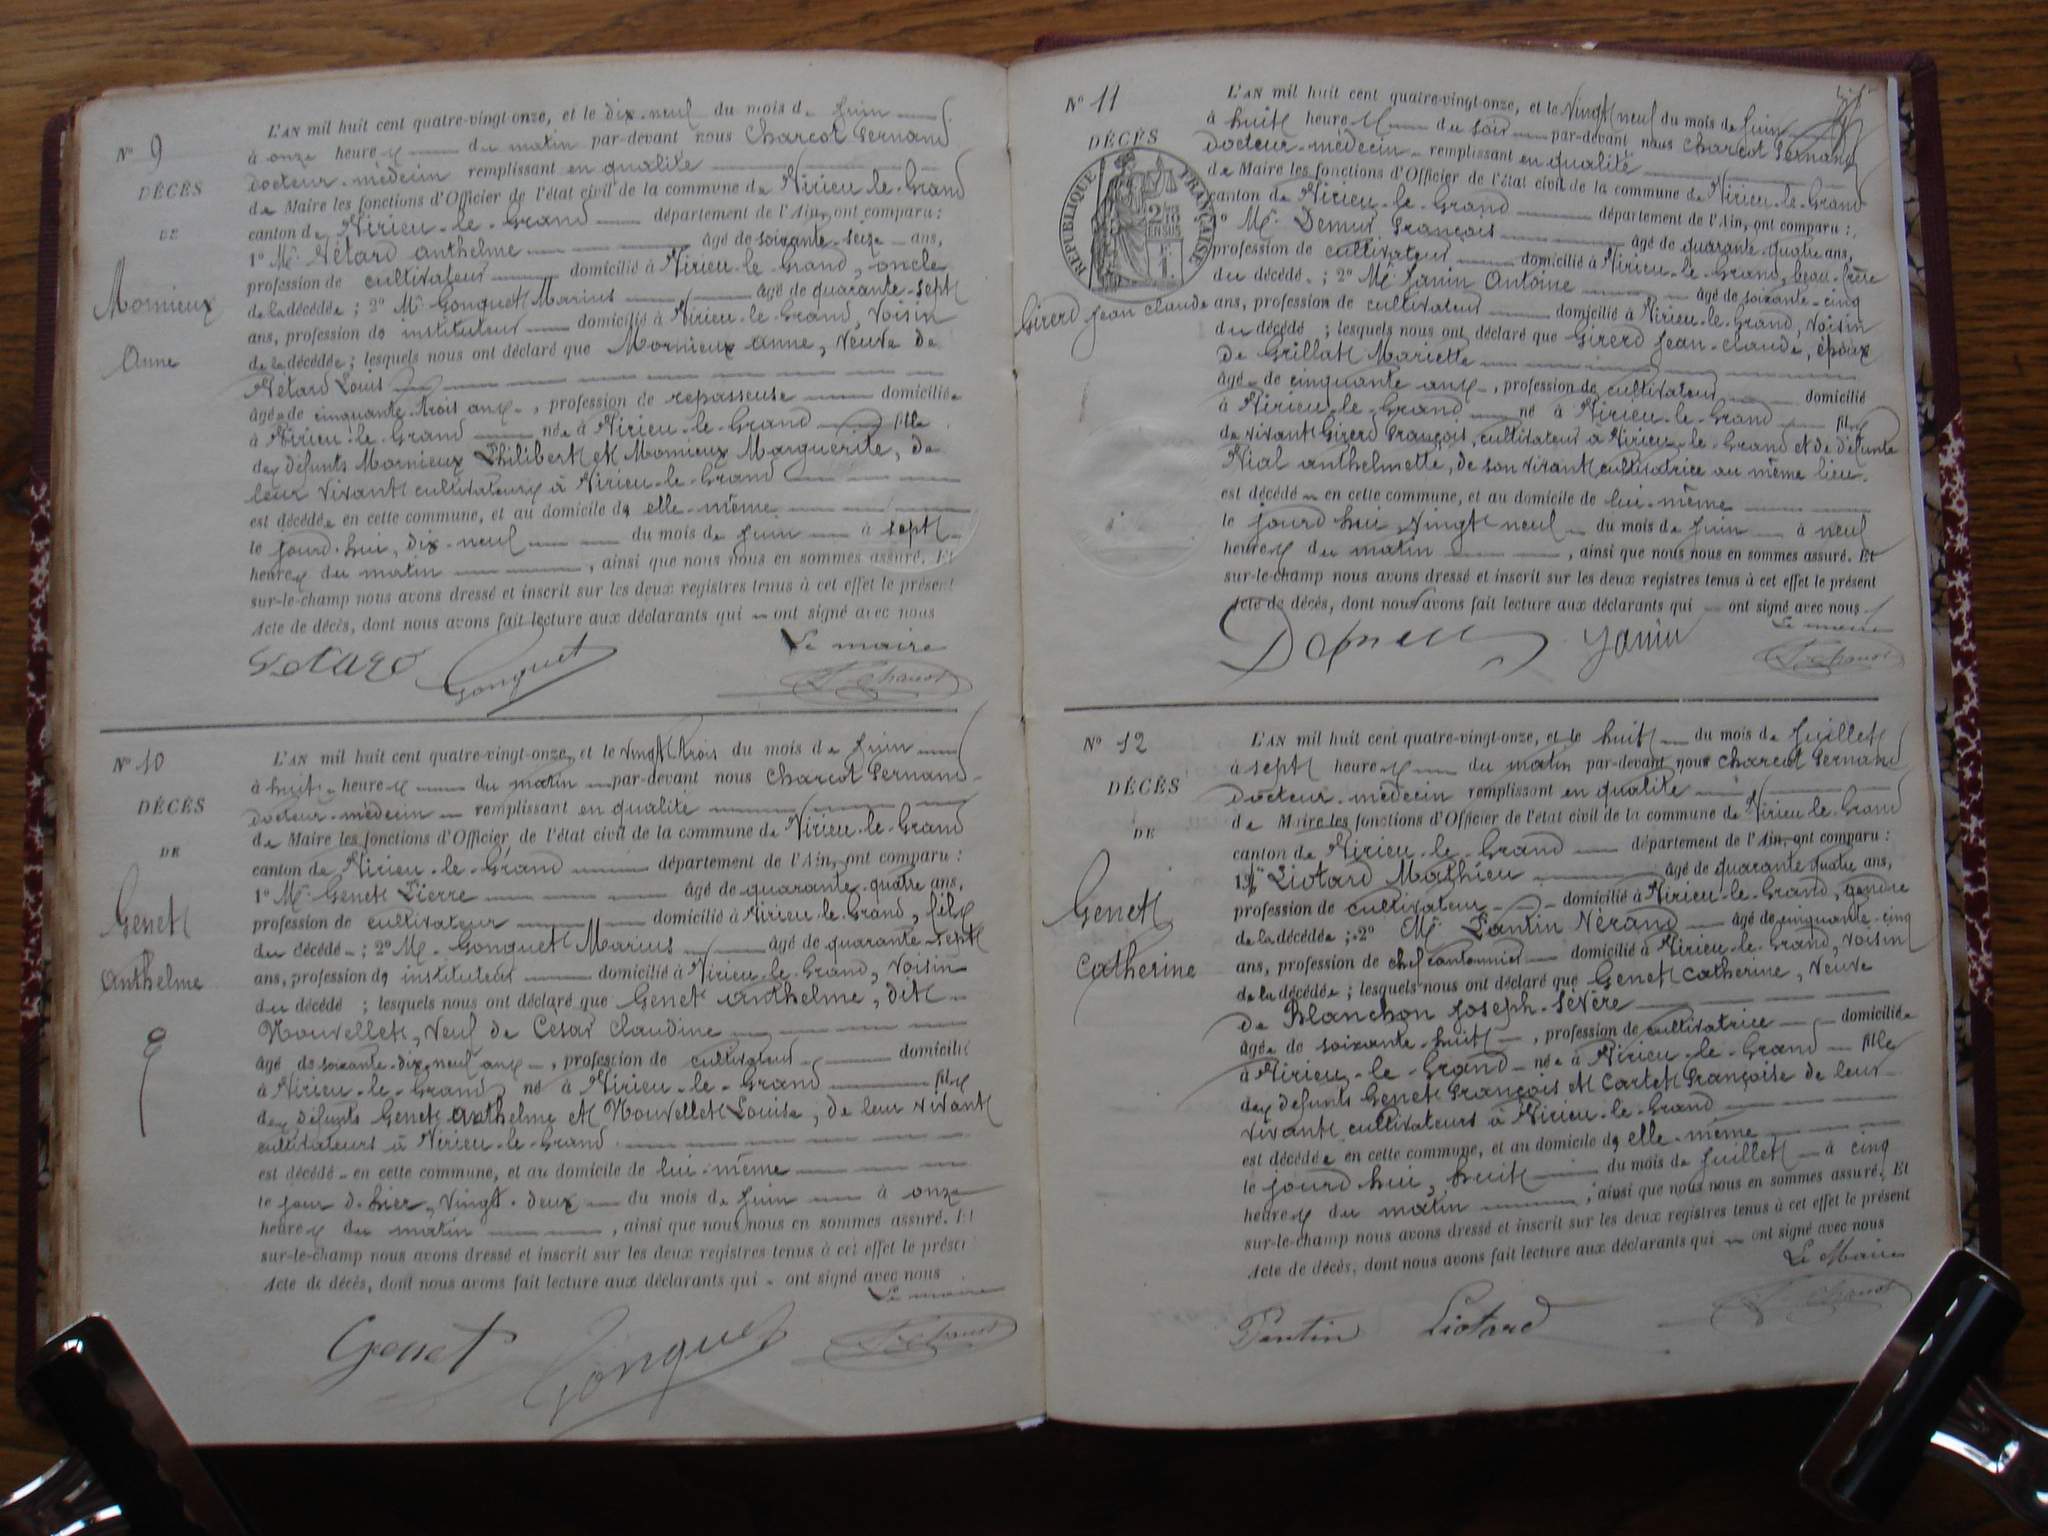 N° 9
DÉCÈS
DE
Mornieux
Anne
L'AN mil huit cent quatre-vingt-onze, et le dix-neuf du mois de Juin
à onze heures du matin par-devant nous Charcot Fernand
docteur-médecin remplissant en qualité
de Maire les fonctions d'Officier de l'état civil de la commune de Virieu-le-Grand
canton de Virieu-le-Grand département de l'Ain, ont comparu :
1° Mr Vétard Anthelme âgé de soixante-seize ans,
profession de cultivateur domicilié à Virieu-le-Grand, oncle
de la décédée ; 2° Mr Gonguet Marius âgé de quarante-sept
ans, profession de instituteur domicilié à Virieu-le-Grand, voisin
de la décédée ; lesquels nous ont déclaré que Mornieux Anne, veuve de
Vétard Louis
âgée de cinquante-trois ans, profession de repasseuse domiciliée
à Virieu-le-Grand née à Virieu-le-Grand fille
des défunts Mornieux Philibert et Mornieux Marguerite, de
leur vivant cultivateurs à Virieu-le-Grand
est décédée en cette commune, et au domicile de elle-même
le jourd'hui, dix-neuf du mois de Juin à sept
heures du matin , ainsi que nous nous en sommes assuré. Et
sur-le-champ nous avons dressé et inscrit sur les deux registres tenus à cet effet le présent
Acte de décès, dont nous avons fait lecture aux déclarants qui ont signé avec nous
Le maire
Vetard Gonguet F. Charcot
N° 10
DÉCÈS
DE
Genet
Anthelme
L'AN mil huit cent quatre-vingt-onze, et le vingt trois du mois de Juin
à huit heures du matin par-devant nous Charcot Fernand
docteur-médecin remplissant en qualité
de Maire les fonctions d'Officier de l'état civil de la commune de Virieu-le-Grand
canton de Virieu-le-Grand département de l'Ain, ont comparu :
1° Mr Genet Pierre âgé de quarante-quatre ans,
profession de cultivateur domicilié à Virieu-le-Grand, fils
du décédé ; 2° Mr Gonguet Marius âgé de quarante-sept
ans, profession de instituteur domicilié à Virieu-le-Grand, voisin
du décédé ; lesquels nous ont déclaré que Genet Anthelme, dit
Nouvellet, veuf de César Claudine
âgé de soixante-dix-neuf ans, profession de cultivateur domicilié
à Virieu-le-Grand, né à Virieu-le-Grand fils
des défunts Genet Anthelme et Nouvellet Louise, de leur vivant
cultivateurs à Virieu-le-Grand
est décédé en cette commune, et au domicile de lui-même
le jour d'hier, vingt-deux du mois de Juin à onze
heures du matin , ainsi que nous nous en sommes assuré. Et
sur-le-champ nous avons dressé et inscrit sur les deux registres tenus à cet effet le présent
Acte de décès, dont nous avons fait lecture aux déclarants qui ont signé avec nous
Le maire
Genet Gonguet F. Charcot
N° 11
DÉCÈS
RÉPUBLIQUE FRANÇAISE
Girerd Jean Claude
L'AN mil huit cent quatre-vingt-onze, et le vingt neuf du mois de Juin
à huit heures du soir par-devant nous Charcot Fernand
docteur-médecin remplissant en qualité
de Maire les fonctions d'Officier de l'état civil de la commune de Virieu-le-Grand
canton de Virieu-le-Grand département de l'Ain, ont comparu :
1° Mr Demur François âgé de quarante-quatre ans,
profession de cultivateur domicilié à Virieu-le-Grand, beau-frère
du décédé ; 2° Mr Janin Antoine âgé de soixante-cinq
ans, profession de cultivateur domicilié à Virieu-le-Grand, voisin
du décédé ; lesquels nous ont déclaré que Girerd Jean-Claude, époux
de Grillat Mariette
âgé de cinquante ans, profession de cultivateur domicilié
à Virieu-le-Grand né à Virieu-le-Grand fils
de vivant Girerd François, cultivateur à Virieu-le-Grand et de défunte
Vial Anthelmette, de son vivant cultivatrice au même lieu.
est décédé en cette commune, et au domicile de lui-même
le jourd'hui, vingt neuf du mois de Juin à neuf
heures du matin , ainsi que nous nous en sommes assuré. Et
sur-le-champ nous avons dressé et inscrit sur les deux registres tenus à cet effet le présent
Acte de décès, dont nous avons fait lecture aux déclarants qui ont signé avec nous
Le maire
Janin F. Charcot
N° 12
DÉCÈS
DE
Genet
Catherine
L'AN mil huit cent quatre-vingt-onze, et le huit du mois de Juillet
à sept heures du matin par-devant nous Charcot Fernand
docteur-médecin remplissant en qualité
de Maire les fonctions d'Officier de l'état civil de la commune de Virieu-le-Grand
canton de Virieu-le-Grand département de l'Ain, ont comparu :
1° Mr Liotard Mathieu âgé de quarante quatre ans,
profession de cultivateur domicilié à Virieu-le-Grand, gendre
de la décédée ; 2° Mr Pantin Nérand âgé de cinquante-cinq
ans, profession de chef cantonnier domicilié à Virieu-le-Grand, voisin
de la décédée ; lesquels nous ont déclaré que Genet Catherine, veuve
de Blanchon Joseph-Sévère
âgée de soixante-huit , profession de cultivatrice domiciliée
à Virieu-le-Grand née à Virieu-le-Grand fille
des défunts Genet François et Cartet Françoise de leur
vivant cultivateurs à Virieu-le-Grand
est décédée en cette commune, et au domicile de elle-même
le jourd'hui, huit du mois de Juillet à cinq
heures du matin , ainsi que nous nous en sommes assuré. Et
sur-le-champ nous avons dressé et inscrit sur les deux registres tenus à cet effet le présent
Acte de décès, dont nous avons fait lecture aux déclarants qui ont signé avec nous
Le Maire
Pantin Liotard F. Charcot